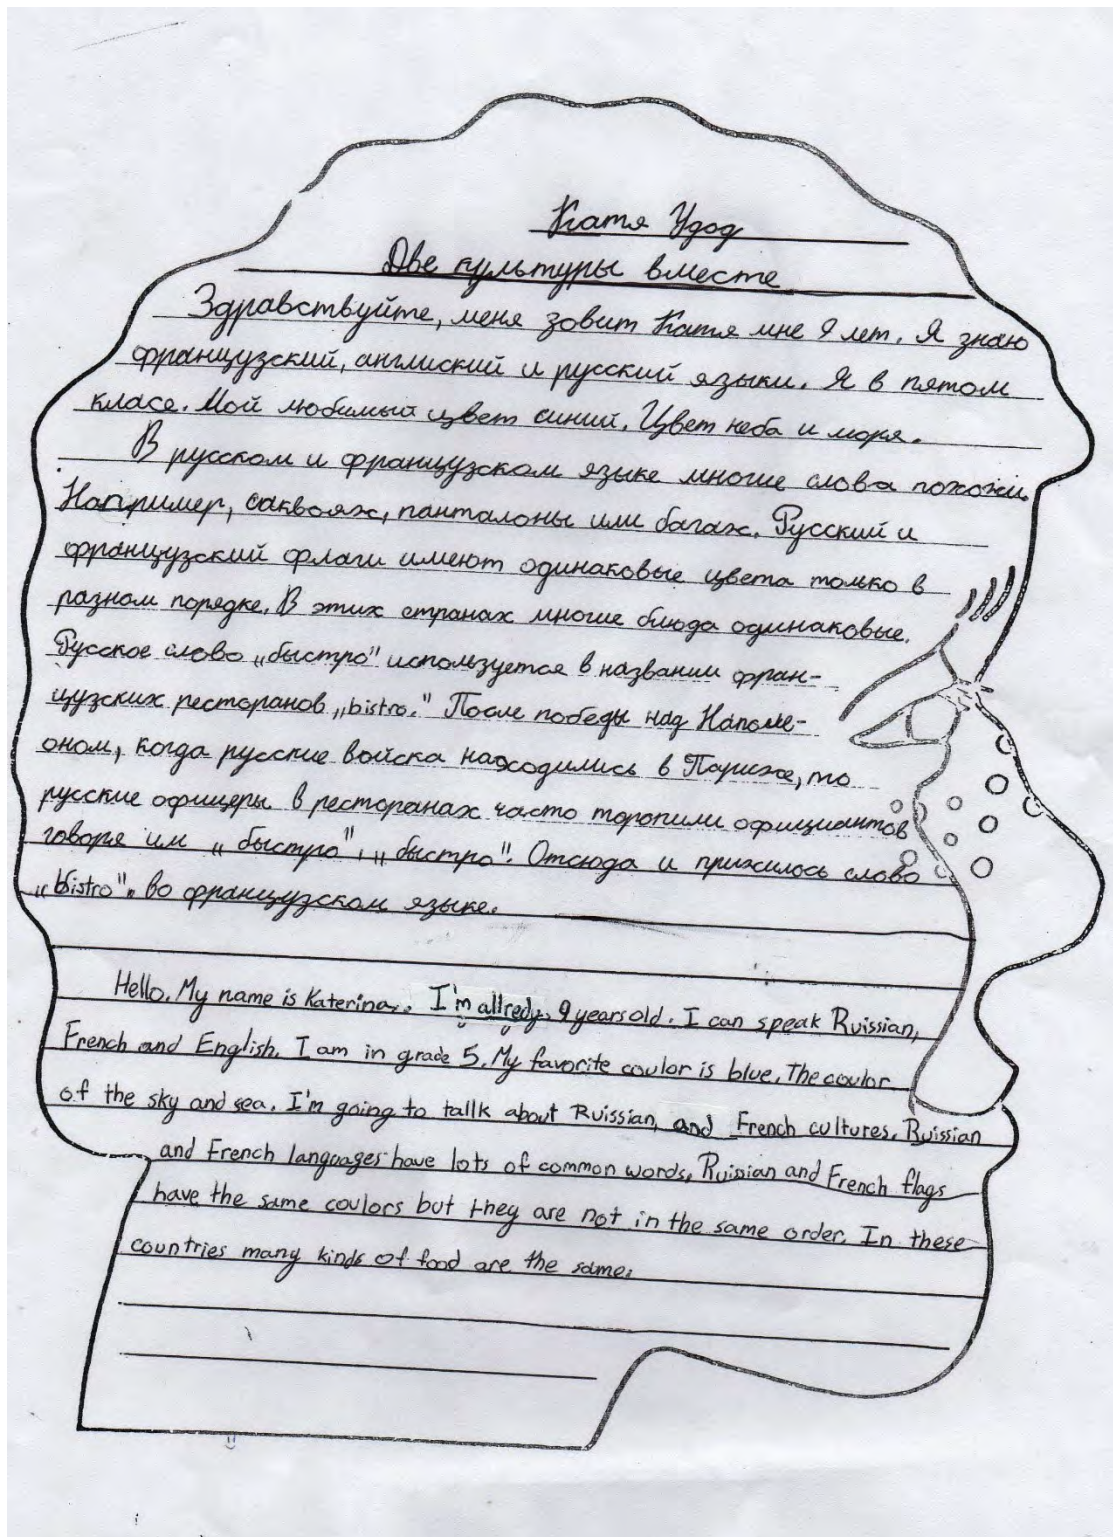 Катя Удод
Две культуры вместе
Здравствуйте, меня зовит Катя мне 9 лет. Я знаю
французский, англиский и русский языки. Я в пятом
класе. Мой любимый цвет синий. Цвет неба и моря.
В русском и французском языке многие слова похожи.
Например, саквояж, панталоны или багаж. Русский и
французский флаги имеют одинаковые цвета только в
разном порядке. В этих странах многие блюда одинаковые.
Русское слово „быстро" используется в названии фран-
цузских ресторанов „bistro." После победы над Наполе-
оном, когда русские войска находились в Париже, то
русские офицеры в ресторанах часто торопили официантов
говоря им „быстро", „быстро". Отсюда и прижилось слово
„bistro". во французском языке.
Hello. My name is Katerina. I'm allredy 9 years old. I can speak Ruissian,
French and English. I am in grade 5. My favorite coulor is blue. The coulor
of the sky and sea. I'm going to tallk about Ruissian, and French cultures. Ruissian
and French languages have lots of common words, Ruissian and French flags
have the same coulors but they are not in the same order. In these
countries many kinds of food are the same.